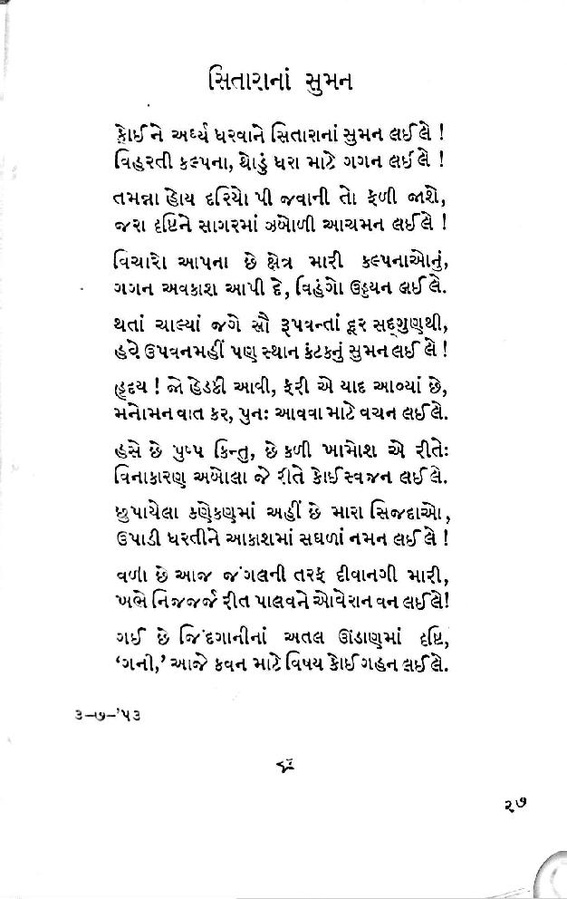 સિતારાનાં સુમન
કોઈને અર્ધ્ય ધરવાને સિતારાનાં સુમન લઈ લે !
વિહરતી કલ્પના, થોડું ધરા માટે ગગન લઈ લે !
તમન્ના હોય દરિયો પી જવાની તો ફળી જાશે,
જરા દૃષ્ટિને સાગરમાં ઝબોળી આચમન લઈ લે !
વિચારો આપના છે ક્ષેત્ર મારી કલ્પનાઓનું,
ગગન અવકાશ આપી દે, વિહંગો ઉડ્ડયન લઈ લે.
થતાં ચાલ્યાં જગે સૌ રૂપવન્તાં દૂર સદ્ગુણથી,
હવે ઉપવનમહીં પણ સ્થાન કંટકનું સુમન લઈ લે !
હૃદય ! જો હેડકી આવી, ફરી એ યાદ આવ્યાં છે,
મનોમન વાત કર, પુનઃ આવવા માટે વચન લઈ લે.
હસે છે પુષ્પ કિન્તુ, છે કળી ખામોશ એ રીતેઃ
વિનાકારણ અબોલા જે રીતે કોઈ સ્વજન લઈ લે.
છુપાયેલા કણેકણમાં અહીં છે મારા સિજદાઓ,
ઉપાડી ધરતીને આકાશમાં સઘળાં નમન લઈ લે !
વળી છે આજ જંગલની તરફ દીવાનગી મારી,
ખભે નિજ જર્જરીત પાલવને ઓ વેરાન વન લઈ લે!
ગઈ છે જિંદગાનીનાં અતલ ઊંડાણમાં દૃષ્ટિ,
‘ગની,’ આજે કવન માટે વિષય કોઈ ગહન લઈ લે.
૩-૭-’૫૩
૨૭